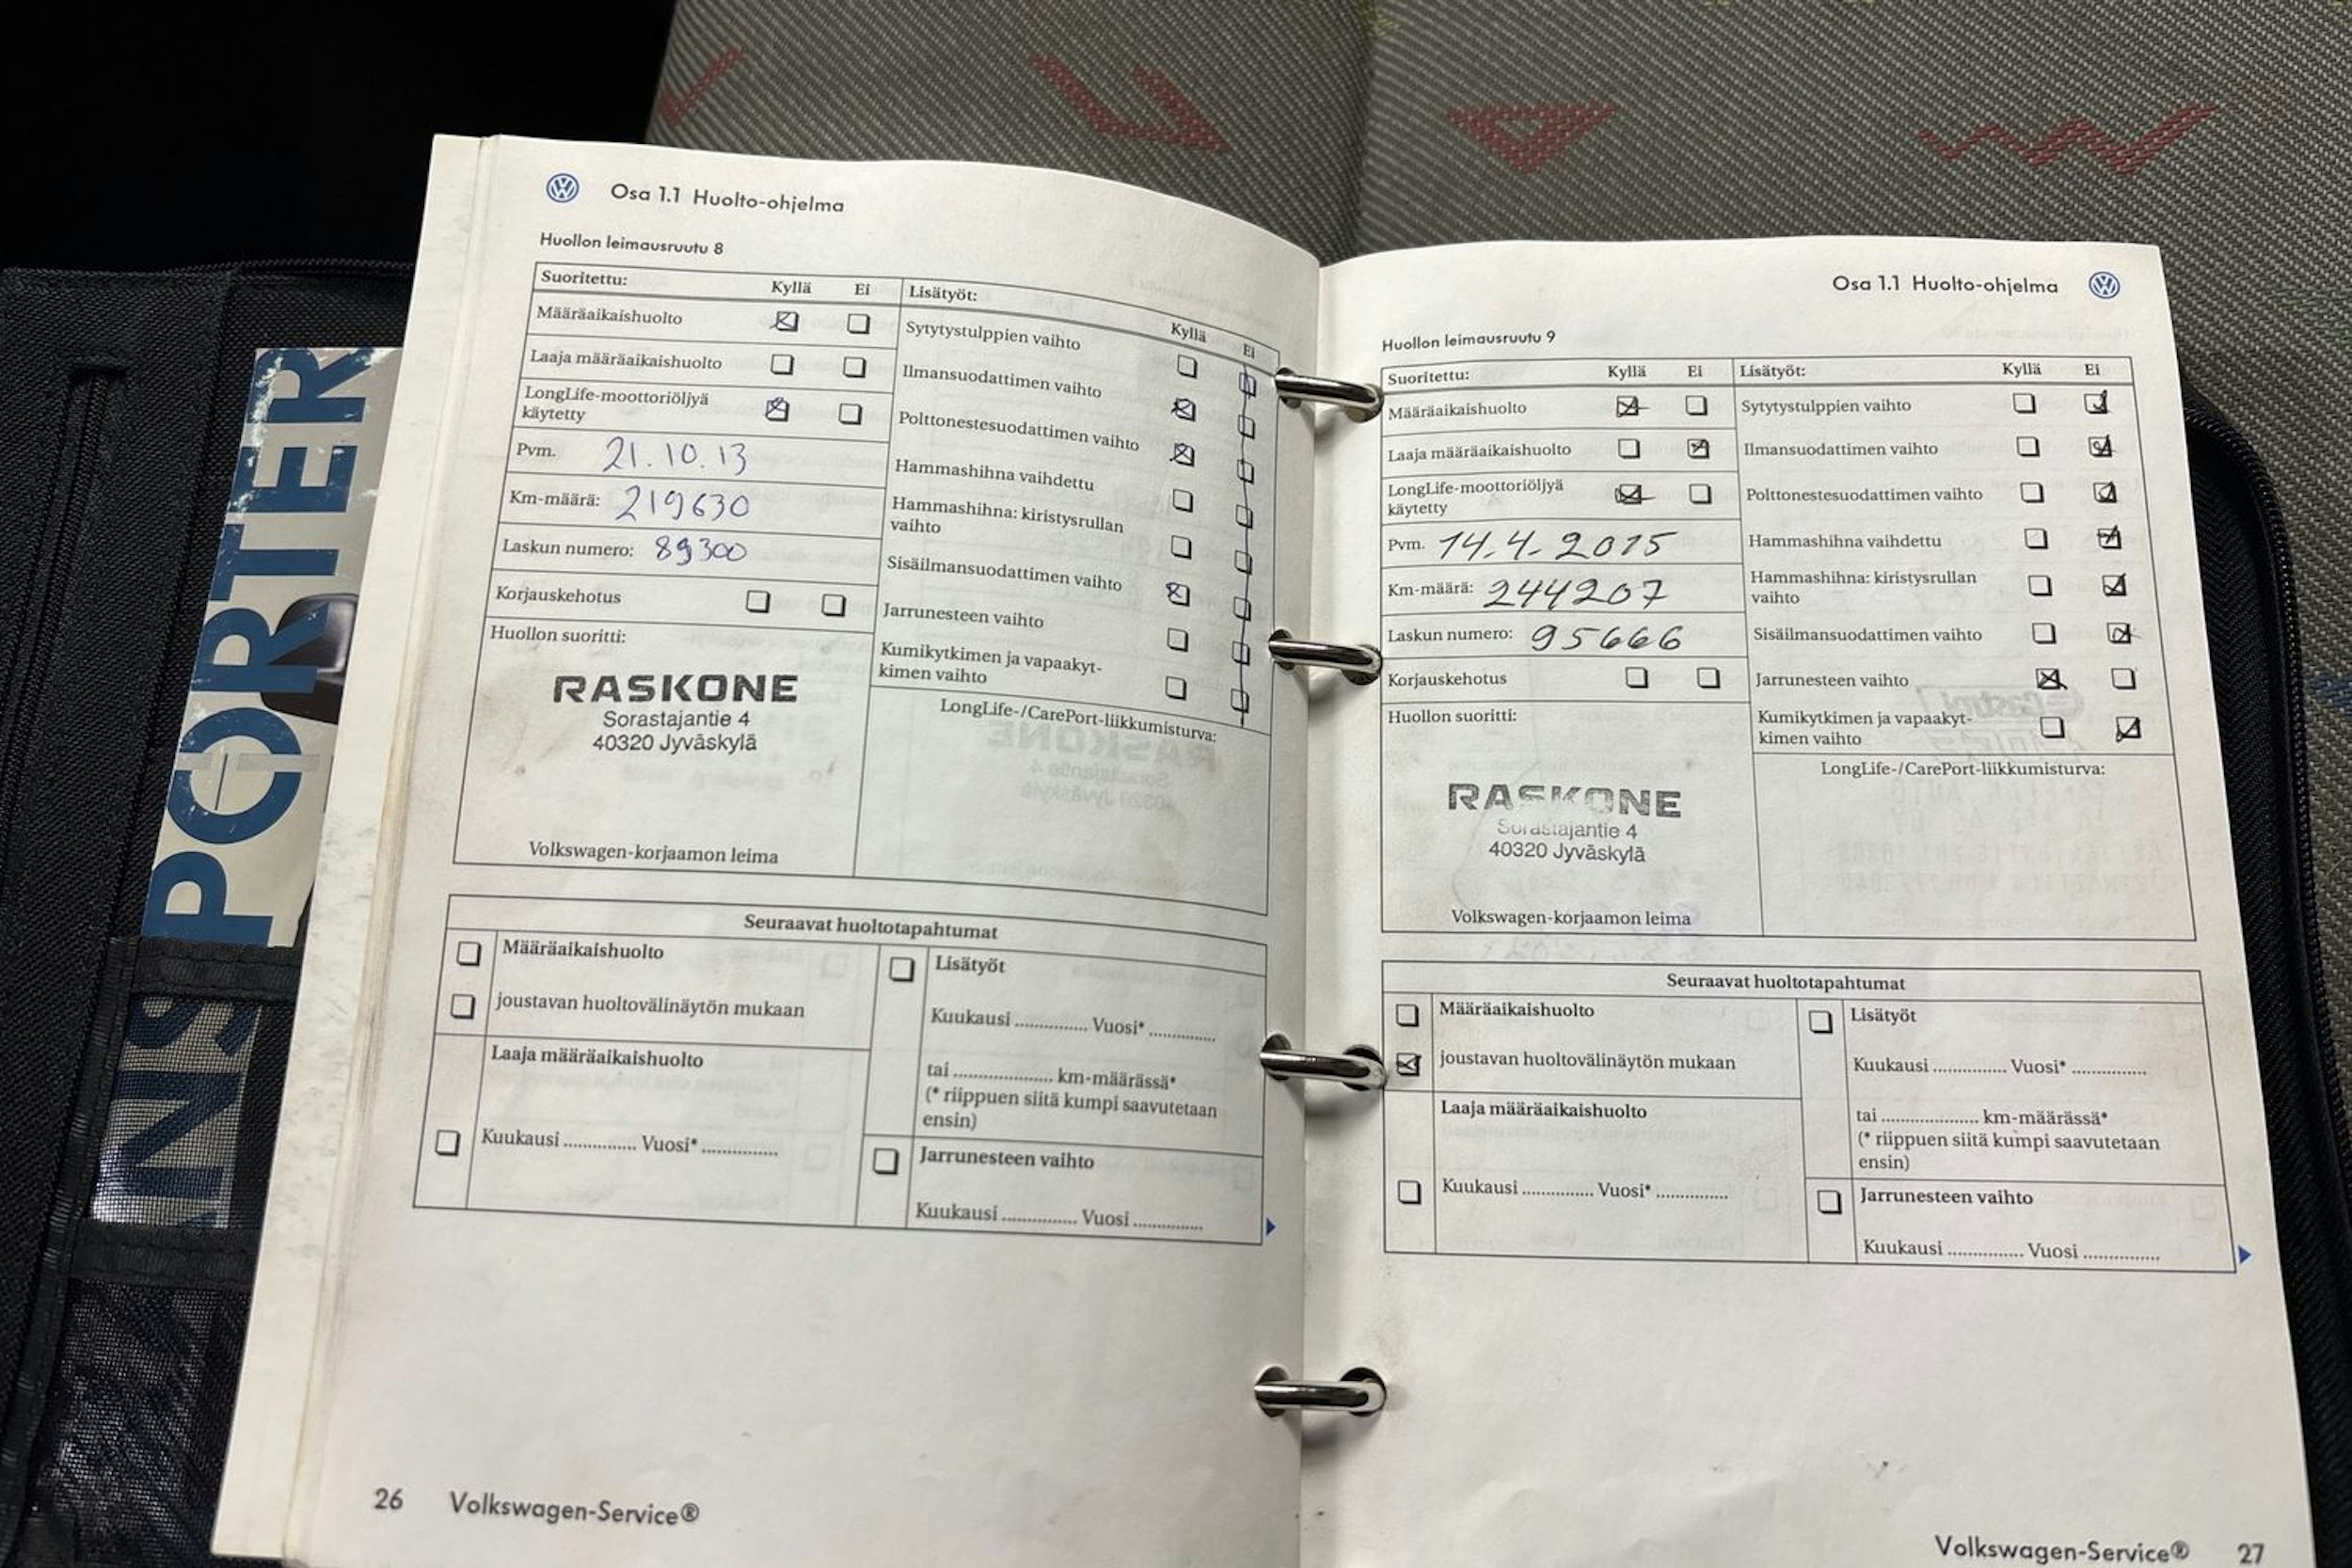 PORTER
NS
Osa 1.1 Huolto-ohjelma
Huollon leimausruutu 8
Suoritettu: Kyllä Ei
Määräaikaishuolto
Laaja määräaikaishuolto
LongLife-moottoriöljyä
käytetty
Pvm. 21.10.13
Km-määrä: 219630
Laskun numero: 89300
Korjauskehotus
Huollon suoritti:
RASKONE
Sorastajantie 4
40320 Jyväskylä
Volkswagen-korjaamon leima
Lisätyöt: Kyllä Ei
Sytytystulppien vaihto
Ilmansuodattimen vaihto
Polttonestesuodattimen vaihto
Hammashihna vaihdettu
Hammashihna: kiristysrullan
vaihto
Sisäilmansuodattimen vaihto
Jarrunesteen vaihto
Kumikytkimen ja vapaakyt-
kimen vaihto
LongLife-/CarePort-liikkumisturva:
Seuraavat huoltotapahtumat
Määräaikaishuolto
joustavan huoltovälinäytön mukaan
Laaja määräaikaishuolto
Kuukausi .............. Vuosi* ..............
Lisätyöt
Kuukausi .............. Vuosi* ..............
tai .................... km-määrässä*
(* riippuen siitä kumpi saavutetaan
ensin)
Jarrunesteen vaihto
Kuukausi ............... Vuosi ..............
26 Volkswagen-Service®
Osa 1.1 Huolto-ohjelma
Huollon leimausruutu 9
Suoritettu: Kyllä Ei
Määräaikaishuolto
Laaja määräaikaishuolto
LongLife-moottoriöljyä
käytetty
Pvm. 14.4.2015
Km-määrä: 244207
Laskun numero: 95666
Korjauskehotus
Huollon suoritti:
RASKONE
Sorastajantie 4
40320 Jyväskylä
Volkswagen-korjaamon leima
Lisätyöt: Kyllä Ei
Sytytystulppien vaihto
Ilmansuodattimen vaihto
Polttonestesuodattimen vaihto
Hammashihna vaihdettu
Hammashihna: kiristysrullan
vaihto
Sisäilmansuodattimen vaihto
Jarrunesteen vaihto
Kumikytkimen ja vapaakyt-
kimen vaihto
LongLife-/CarePort-liikkumisturva:
Seuraavat huoltotapahtumat
Määräaikaishuolto
joustavan huoltovälinäytön mukaan
Laaja määräaikaishuolto
Kuukausi .............. Vuosi* ..............
Lisätyöt
Kuukausi .............. Vuosi* ..............
tai .................... km-määrässä*
(* riippuen siitä kumpi saavutetaan
ensin)
Jarrunesteen vaihto
Kuukausi ............... Vuosi ...............
Volkswagen-Service® 27